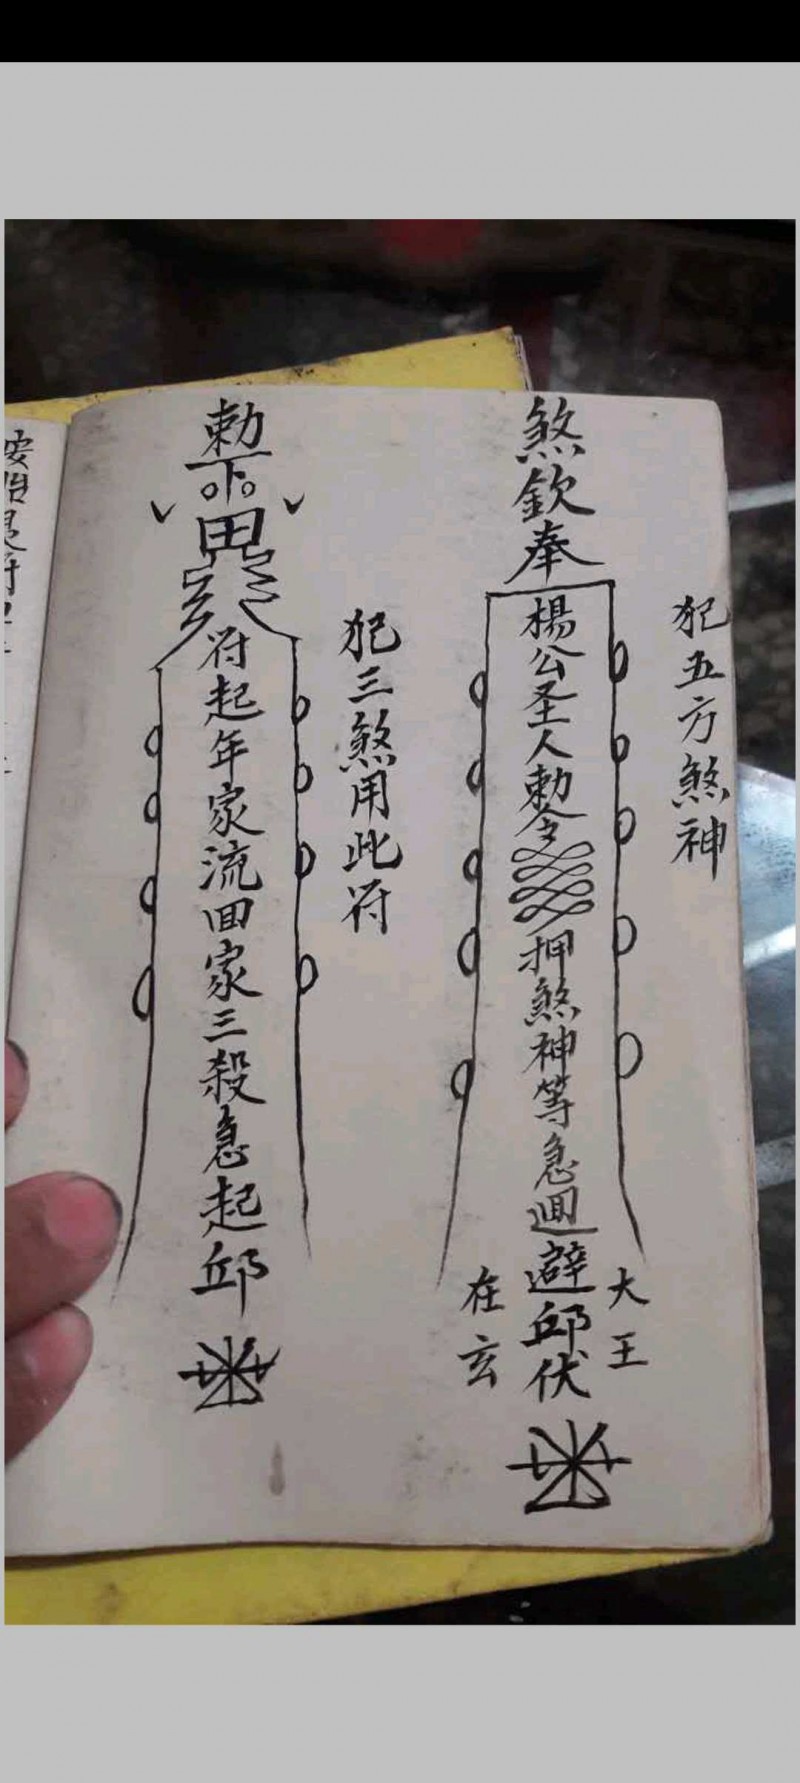 犯五方煞神
煞欽奉
楊公圣人勅令
押煞神等急廻避邱伏
大王
在玄
犯三煞用此符
勅下
符起年家流回家三殺急起邱